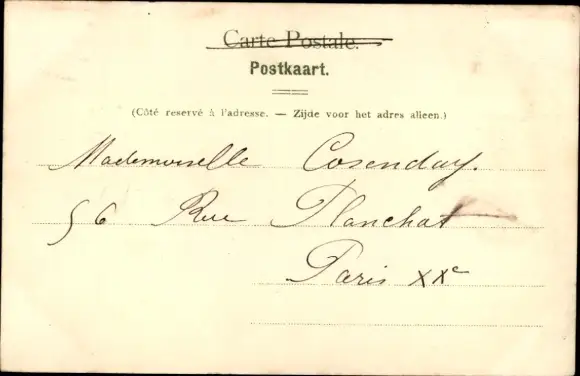 Carte Postale.
Postkaart.
(Côté reservé à l'adresse. — Zijde voor het adres alleen.)
Mademoiselle Cosenday.
56 Rue Planchat
Paris XXe